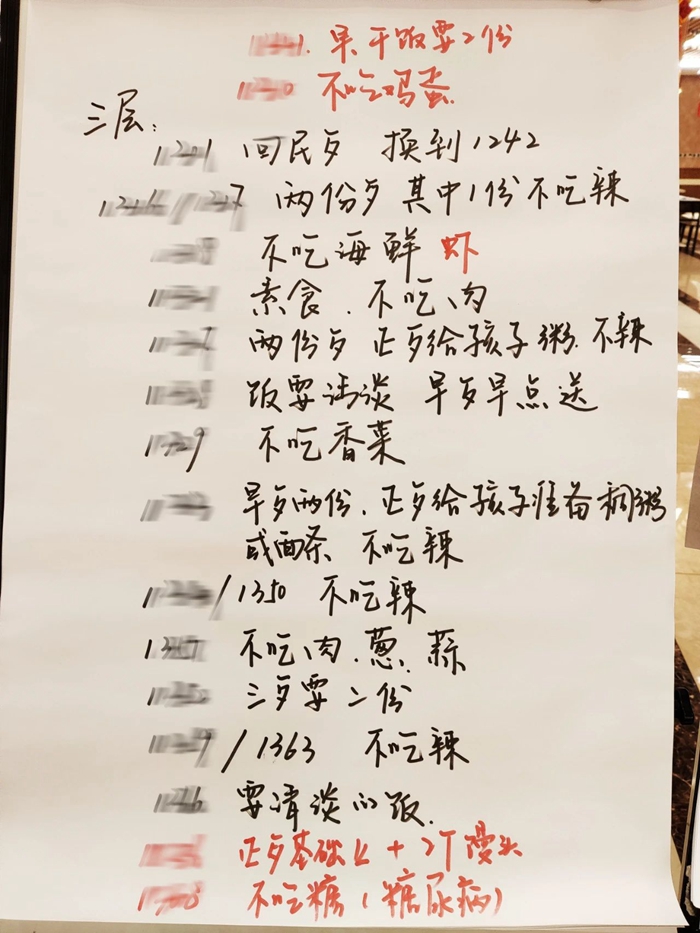 早干饭要2份
不吃鸡蛋
三层:
回民歺 换到1242
两份歺 其中1份不吃辣
不吃海鲜 虾
素食.不吃肉
两份歺 正歺给孩子粥.不辣
饭要清淡 早歺早点送
不吃香菜
早歺两份.正歺给孩子准备稠粥
或面条 不吃辣
/1350 不吃辣
不吃肉.葱.蒜
三歺要二份
/1363 不吃辣
要清淡的饭.
正歺基础上+2个馒头
不吃糖(糖尿病)